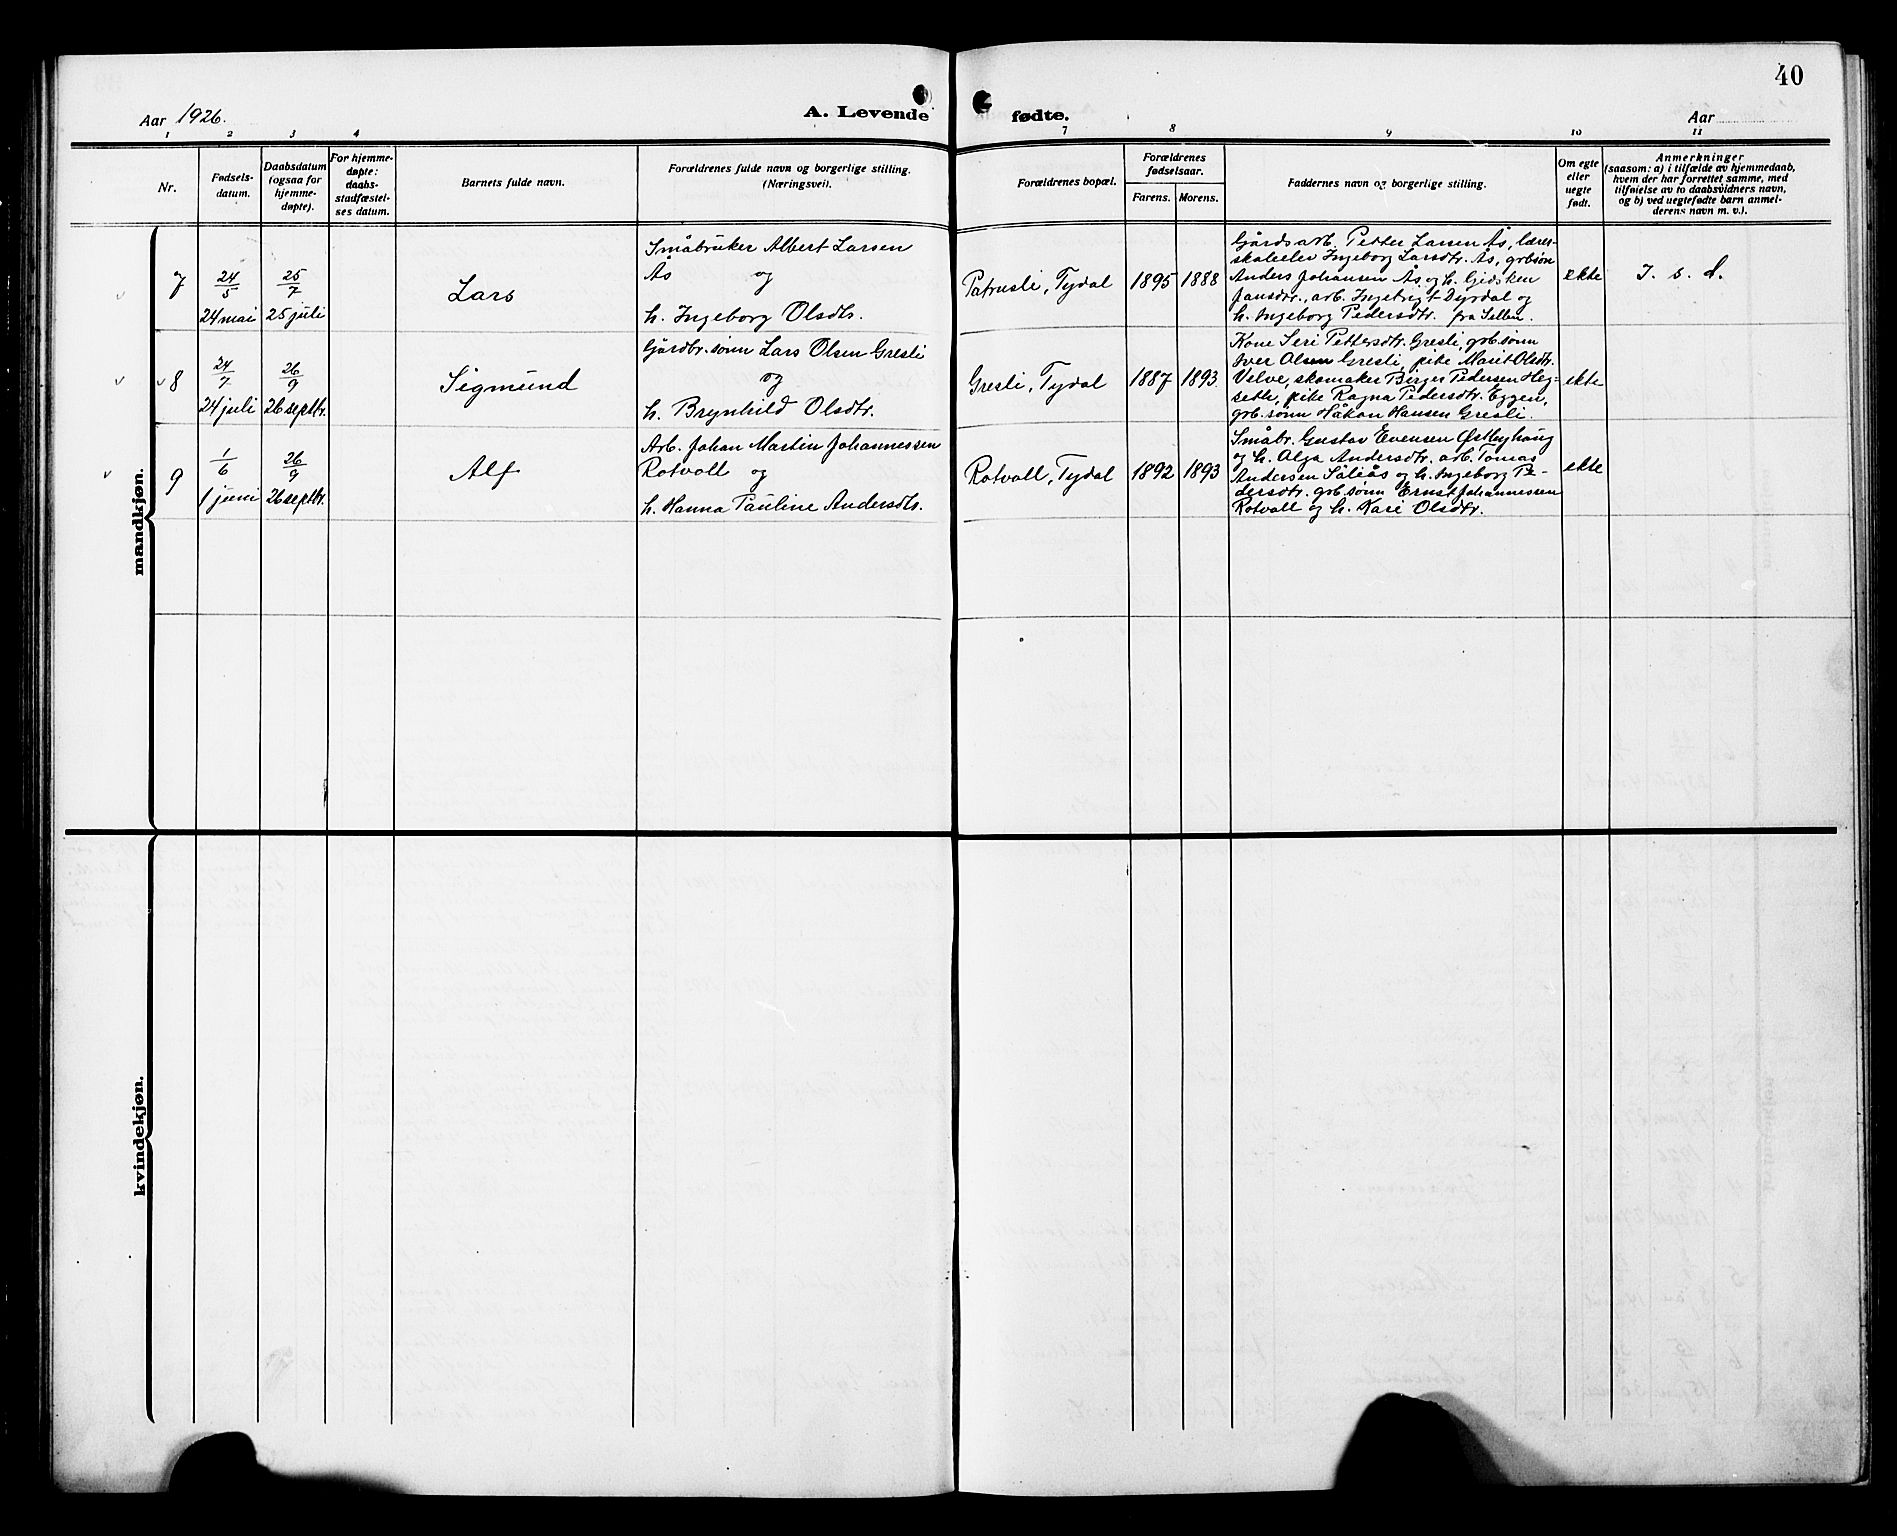 40
Aar 1926.
A. Levende
fødte.
Aar
1 2 3 4
7 8 9 10 11
Nr.
Fødsels-
datum.
Daabsdatum
(ogsaa for
hjemme-
døpte).
For hjemme-
døpte:
daabs-
stadfæstel-
ses datum.
Barnets fulde navn.
Forældrenes fulde navn og borgerlige stilling.
(Næringsvei).
Forældrenes bopæl.
Forældrenes
fødselsaar.
Farens. Morens.
Faddernes navn og borgerlige stilling.
Om egte
eller
uegte
født.
Anmerkninger
(saasom: a) i tilfælde av hjemmedaab,
hvem der har forrettet samme, med
tilføielse av to daabsvidners navn,
og b) ved uegtefødte barn anmel-
derens navn m. v.).
mandkjøn.
7
24/5
24 mai
25/7
25 juli
Lars
Småbruker Albert Larsen
Ås og
h. Ingeborg Olsdtr.
Patrusli, Tydal
1895
1888
Gårdsarb. Petter Larsen Ås, lærer-
skoleelev Ingeborg Larsdtr. Ås, grbsøn
Anders Johansen Ås og h. Gjdsken
Jansdtr., arb. Ingebrigt Dyrdal og
h. Ingeborg Pedersdtr. fra Selbu.
ekte
I. s. d.
8
24/7
24 juli
26/9
26 septbr.
Sigmund
Gårdbr. sønn Lars Olsen Gresli
og
h. Brynhild Olsdtr.
Gresli, Tydal
1887
1893
Kone Seri Pettersdtr. Gresli, grb. sønn
Iver Olsen Gresli, pike Marit Olsdtr.
Velve, skomaker Birger Pedersen Heg-
sette, pike Ragna Pedersdtr. Eggen,
grb. sønn Håkon Hansen Gresli.
ekte
9
1/6
1 juni
26/9
26 septbr.
Alf
Arb. Johan Martin Johannessen
Rotvoll og
h. Hanna Pauline Andersdtr.
Rotvoll, Tydal
1892
1893
Småbr. Gustav Evensen Østbyhaug
og h. Olga Andersdtr. arb. Tomas
Andersen Såliås og h. Ingeborg Pe-
dersdtr. grb. sønn Ernst Johannessen
Rotvoll og h. Kari Olsdtr.
ekte
kvindekjøn.